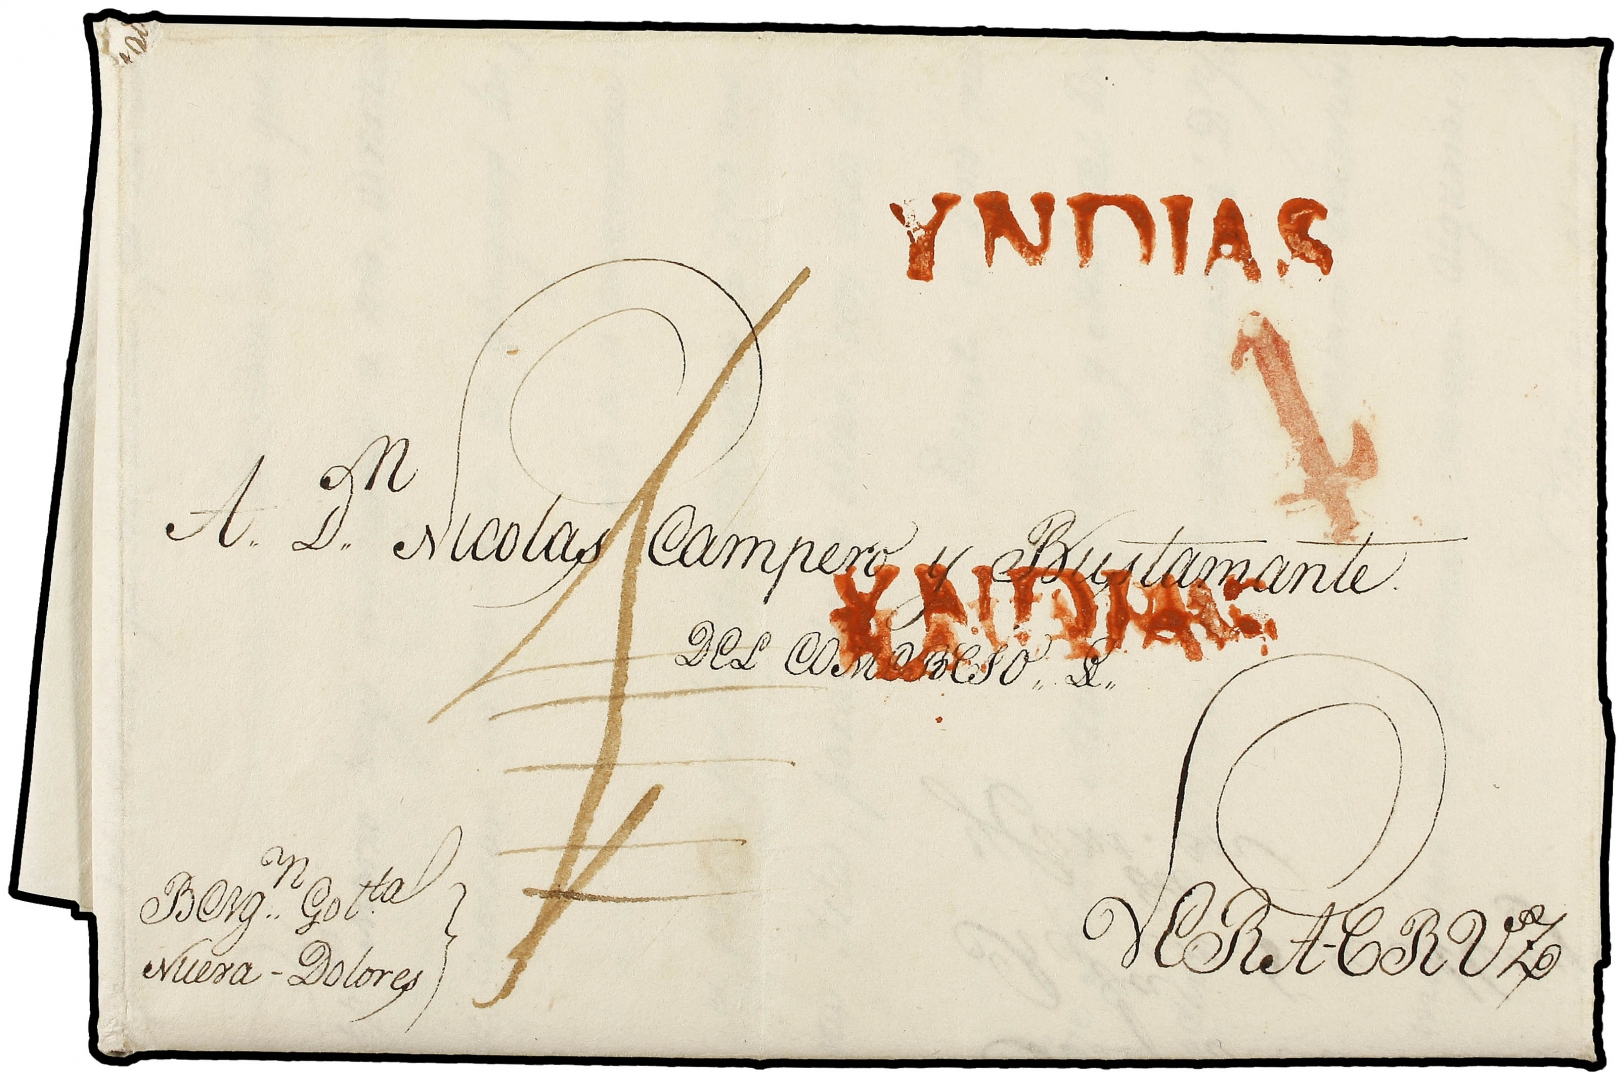 YNDIAS
A. Dn. Nicolas Campero y Bustamante.
YNDIAS
DEL COMERCIO,, &,,
Bergn. Golta
Nueva - Dolores
VERA-CRUZ